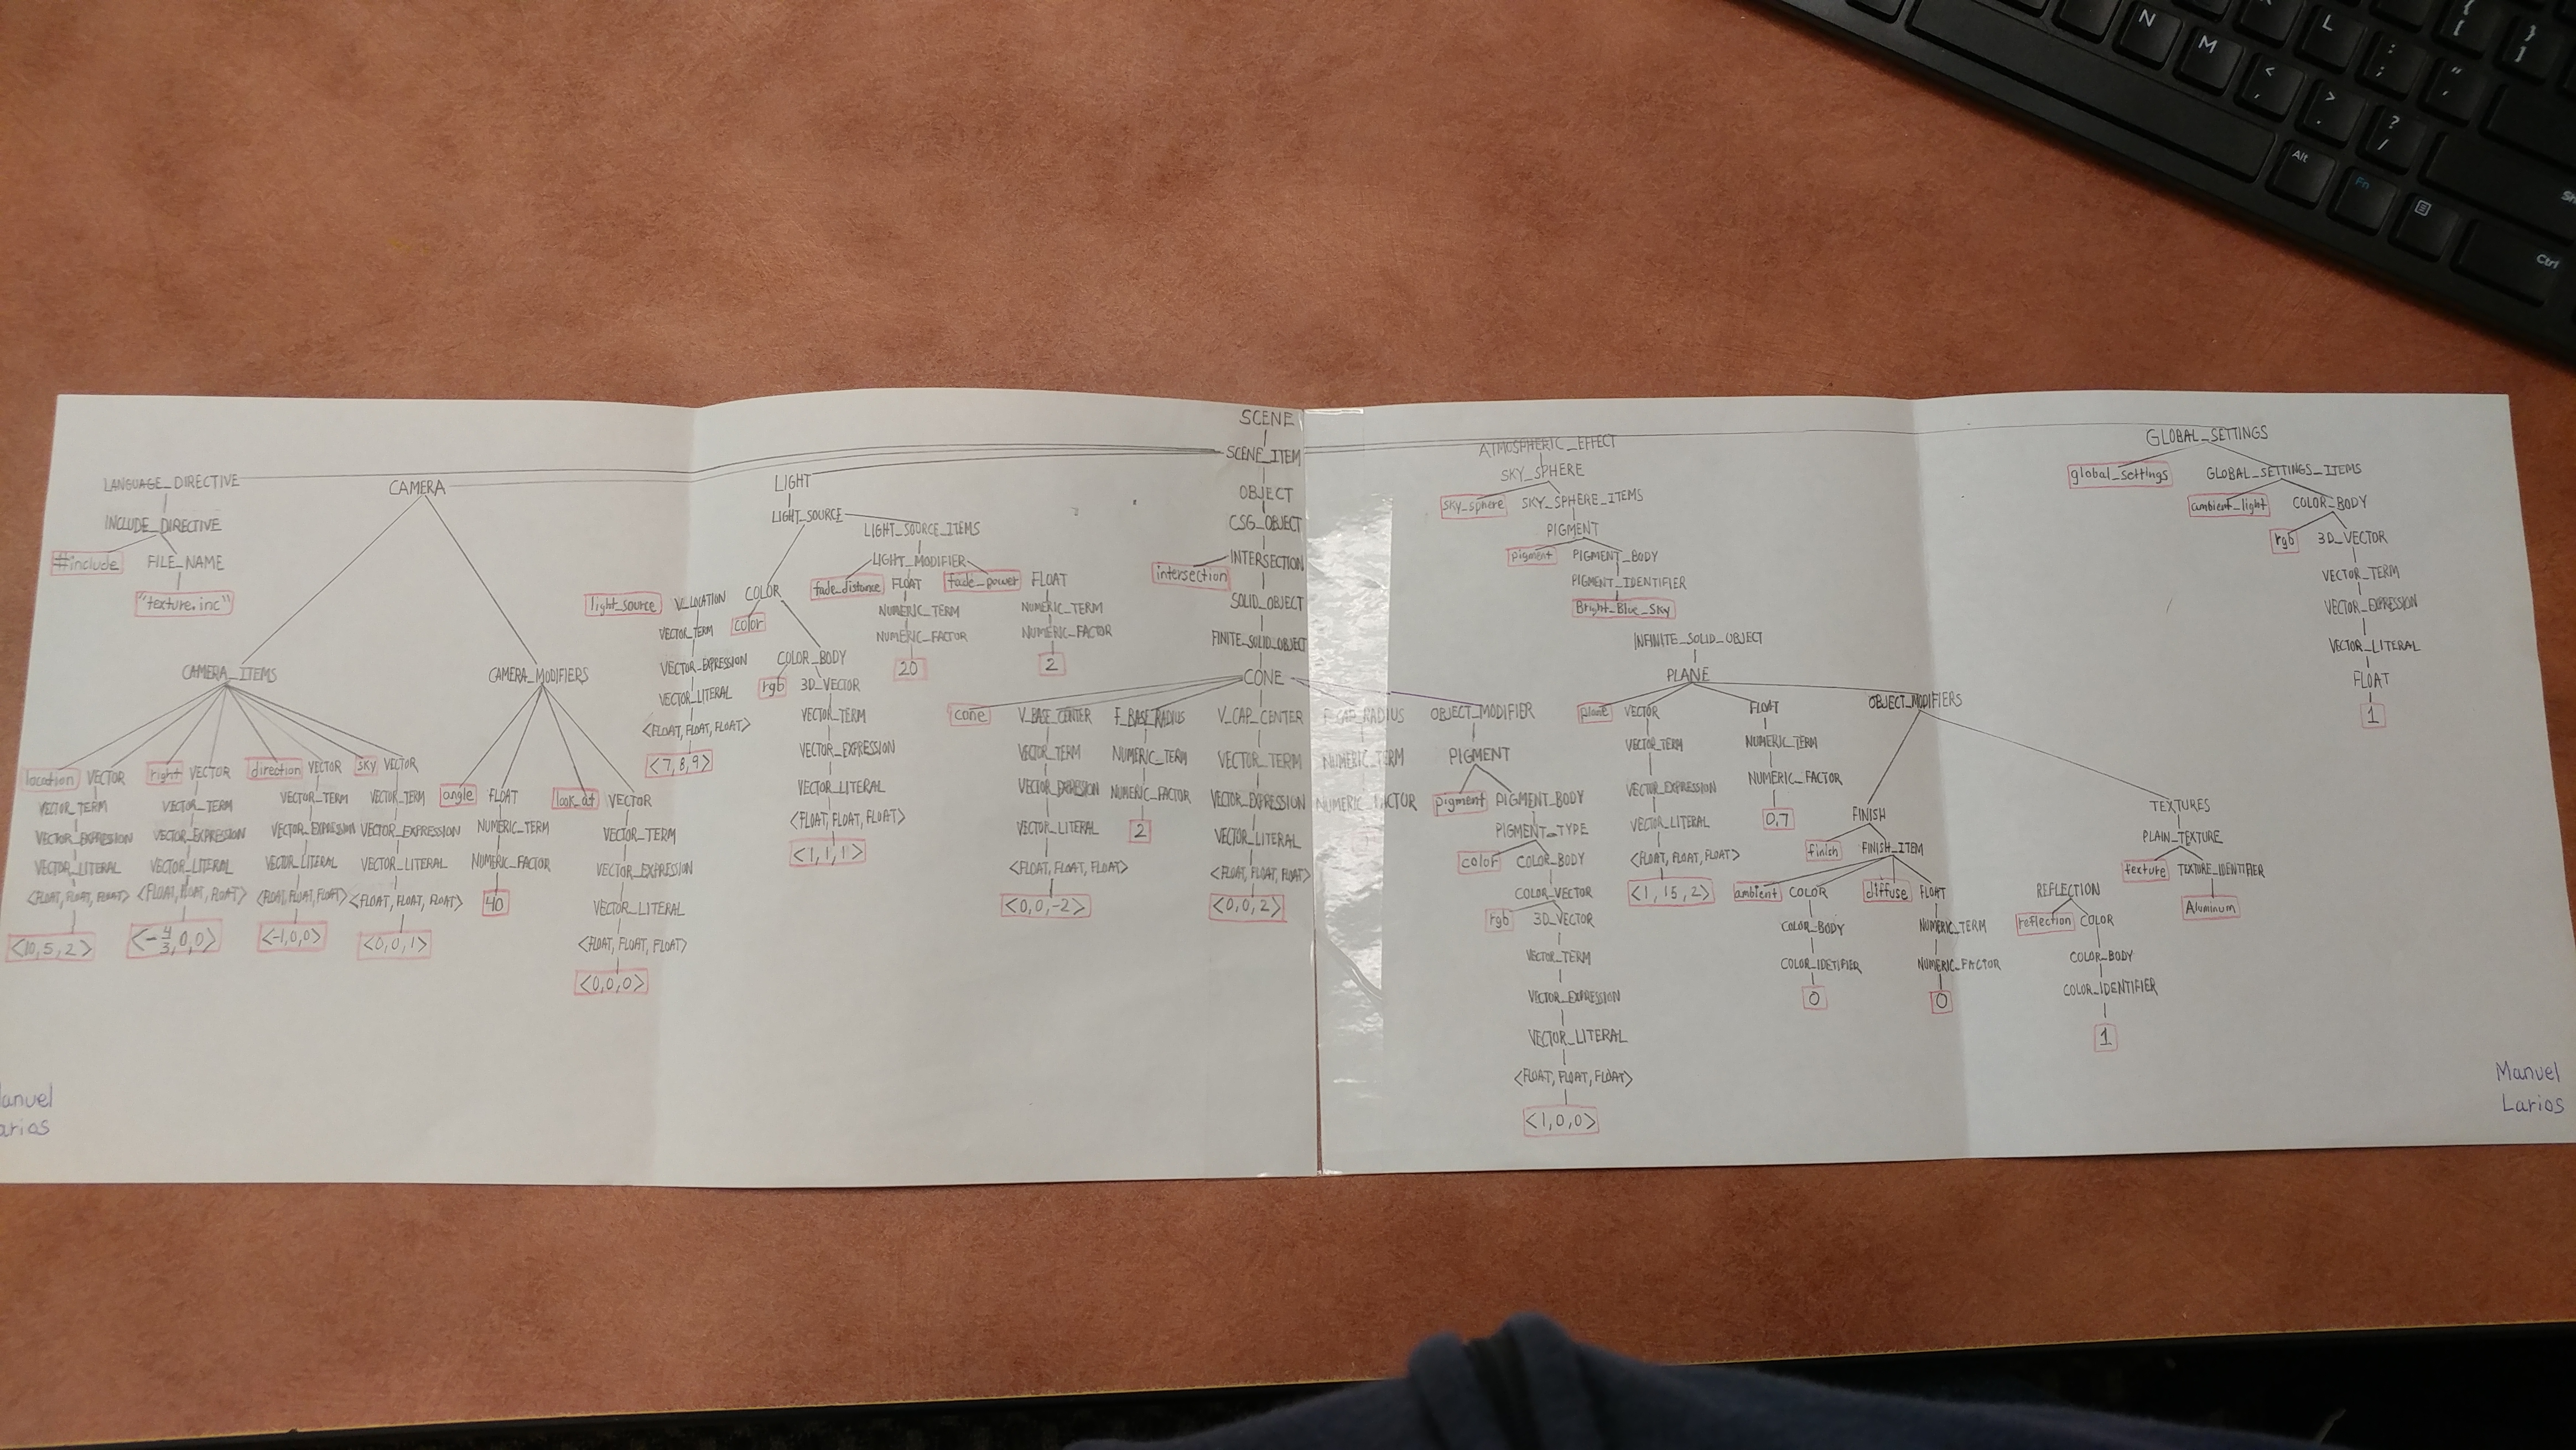 SCENE
SCENE_ITEM
LANGUAGE_DIRECTIVE
INCLUDE_DIRECTIVE
#include FILE_NAME
"texture.inc"
CAMERA
CAMERA_ITEMS
location VECTOR
VECTOR_TERM
VECTOR_EXPRESSION
VECTOR_LITERAL
<FLOAT, FLOAT, FLOAT>
<10, 5, 2>
right VECTOR
VECTOR_TERM
VECTOR_EXPRESSION
VECTOR_LITERAL
<FLOAT, FLOAT, FLOAT>
<-4/3, 0, 0>
direction VECTOR
VECTOR_TERM
VECTOR_EXPRESSION
VECTOR_LITERAL
<FLOAT, FLOAT, FLOAT>
<-1, 0, 0>
sky VECTOR
VECTOR_TERM
VECTOR_EXPRESSION
VECTOR_LITERAL
<FLOAT, FLOAT, FLOAT>
<0, 0, 1>
CAMERA_MODIFIERS
angle FLOAT
NUMERIC_TERM
NUMERIC_FACTOR
40
look_at VECTOR
VECTOR_TERM
VECTOR_EXPRESSION
VECTOR_LITERAL
<FLOAT, FLOAT, FLOAT>
<0, 0, 0>
LIGHT
LIGHT_SOURCE
light_source V_LOCATION
VECTOR_TERM
VECTOR_EXPRESSION
VECTOR_LITERAL
<FLOAT, FLOAT, FLOAT>
<7, 8, 9>
COLOR
color
COLOR_BODY
rgb 3D_VECTOR
VECTOR_TERM
VECTOR_EXPRESSION
VECTOR_LITERAL
<FLOAT, FLOAT, FLOAT>
<1, 1, 1>
LIGHT_SOURCE_ITEMS
LIGHT_MODIFIER
fade_distance FLOAT
NUMERIC_TERM
NUMERIC_FACTOR
20
fade_power FLOAT
NUMERIC_TERM
NUMERIC_FACTOR
2
OBJECT
CSG_OBJECT
INTERSECTION
intersection
SOLID_OBJECT
FINITE_SOLID_OBJECT
CONE
cone
V_BASE_CENTER
VECTOR_TERM
VECTOR_EXPRESSION
VECTOR_LITERAL
<FLOAT, FLOAT, FLOAT>
<0, 0, -2>
F_BASE_RADIUS
NUMERIC_TERM
NUMERIC_FACTOR
2
V_CAP_CENTER
VECTOR_TERM
VECTOR_EXPRESSION
VECTOR_LITERAL
<FLOAT, FLOAT, FLOAT>
<0, 0, 2>
F_CAP_RADIUS
NUMERIC_TERM
NUMERIC_FACTOR
OBJECT_MODIFIER
PIGMENT
pigment PIGMENT_BODY
PIGMENT_TYPE
color COLOR_BODY
COLOR_VECTOR
rgb 3D_VECTOR
VECTOR_TERM
VECTOR_EXPRESSION
VECTOR_LITERAL
<FLOAT, FLOAT, FLOAT>
<1, 0, 0>
ATMOSPHERIC_EFFECT
SKY_SPHERE
sky_sphere SKY_SPHERE_ITEMS
PIGMENT
pigment PIGMENT_BODY
PIGMENT_IDENTIFIER
Bright_Blue_Sky
INFINITE_SOLID_OBJECT
PLANE
plane VECTOR
VECTOR_TERM
VECTOR_EXPRESSION
VECTOR_LITERAL
<FLOAT, FLOAT, FLOAT>
<1, 15, 2>
FLOAT
NUMERIC_TERM
NUMERIC_FACTOR
0.7
OBJECT_MODIFIERS
FINISH
finish FINISH_ITEM
ambient COLOR
COLOR_BODY
COLOR_IDETIFIER
0
diffuse FLOAT
NUMERIC_TERM
NUMERIC_FACTOR
0
REFLECTION
reflection COLOR
COLOR_BODY
COLOR_IDENTIFIER
1
TEXTURES
PLAIN_TEXTURE
texture TEXTURE_IDENTIFIER
Aluminum
GLOBAL_SETTINGS
global_settings GLOBAL_SETTINGS_ITEMS
ambient_light COLOR_BODY
rgb 3D_VECTOR
VECTOR_TERM
VECTOR_EXPRESSION
VECTOR_LITERAL
FLOAT
1
anuel
arios
Manuel
Larios
N
M
L
<
,
>
.
?
/
:
;
"
Alt
Fn
Ctrl